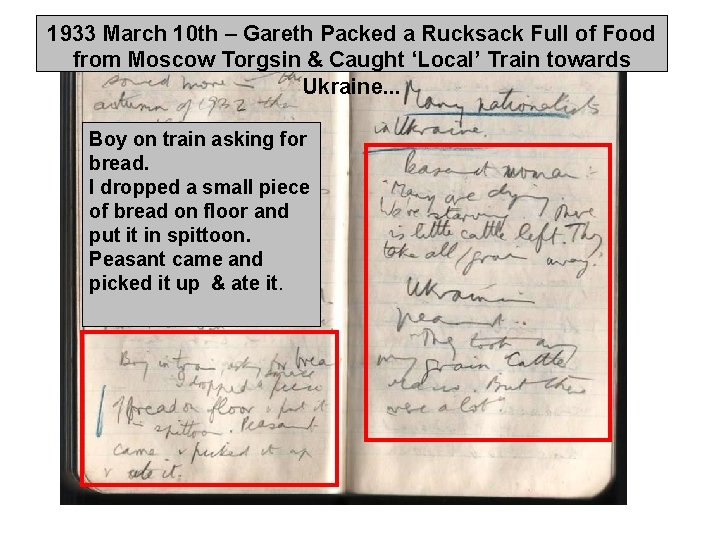 1933 March 10 th – Gareth Packed a Rucksack Full of Food
from Moscow Torgsin & Caught ‘Local’ Train towards
Ukraine...
sowed more in the
autumn of 1932 than
Boy on train asking for
bread.
I dropped a small piece
of bread on floor and
put it in spittoon.
Peasant came and
picked it up & ate it.
Boy in train asking for brea
dropped a piece
of bread on floor & put it
in spittoon. Peasant
came & picked it up
& ate it.
Many nationalists
in Ukraine.
peasant woman:
"Many are dying.
We're starving. There
is little cattle left. They
take all grain away."
Ukrainian
peasant..
"They took
my grain Cattle
But there
were a lot."